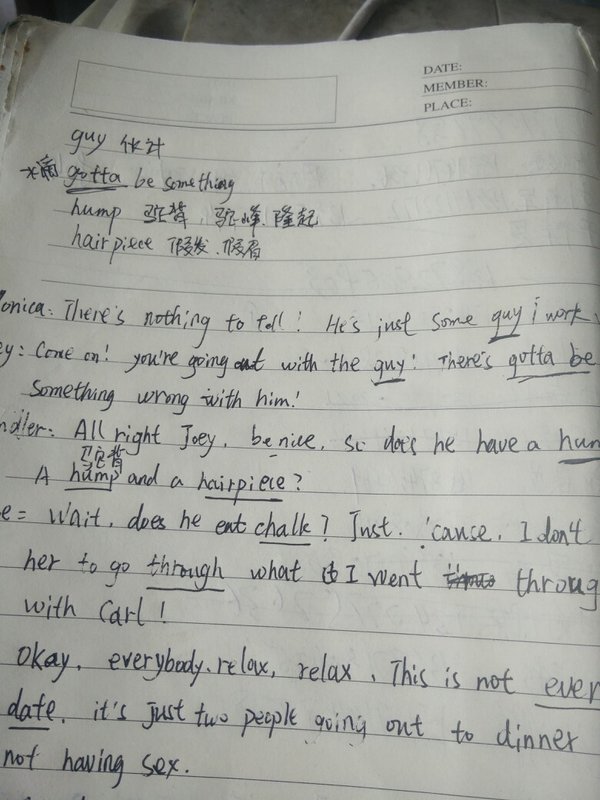 DATE:
MEMBER:
PLACE:
guy 伙计
gotta be something
hump 驼背 驼峰 隆起
hairpiece 假发、假眉
onica: There's nothing to tell! He's just some guy i work
ey: Come on! you're going out with the guy! There's gotta be
something wrong with him!
ndler: All right Joey, be nice, so does he have a hum
驼背
A hump and a hairpiece?
e = Wait, does he eat chalk? Just, 'cause, I don't
her to go through what I went throug
with Carl!
Okay, everybody relax, relax. This is not even
date, it's just two people going out to dinner
not having sex.